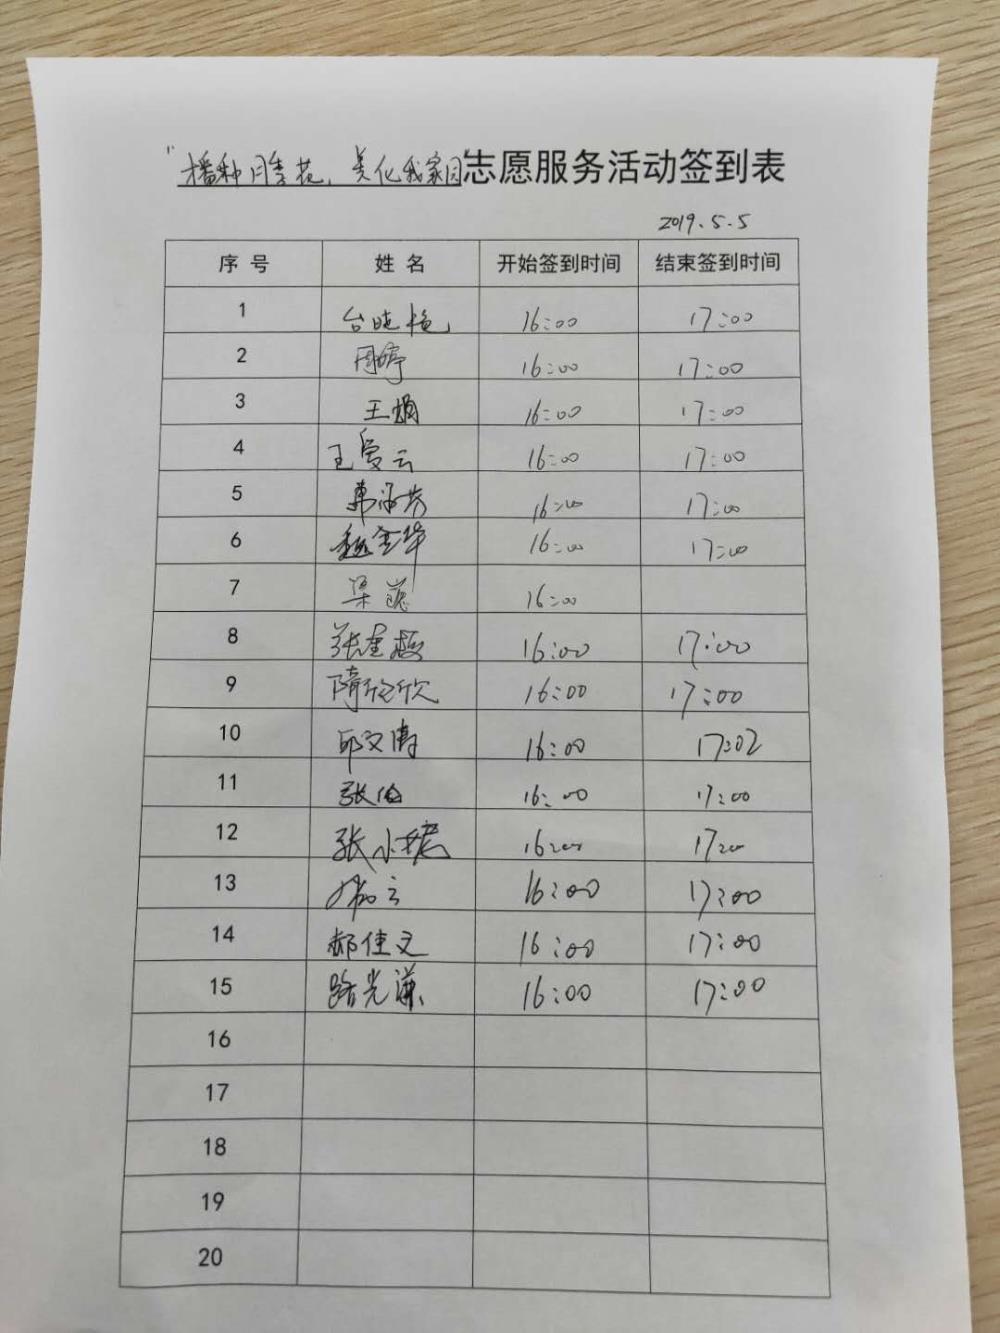 "播种月季花,美化我家园"志愿服务活动签到表
2019.5.5
序号 姓名 开始签到时间 结束签到时间
1 台晓艳 16:00 17:00
2 周婷 16:00 17:00
3 王娟 16:00 17:00
4 王爱云 16:00 17:00
5 16:00 17:00
6 魏金华 16:00 17:00
7 梁 16:00
8 张 16:00 17:00
9 隋欣欣 16:00 17:00
10 邱文涛 16:00 17:02
11 张 16:00 17:00
12 张小 16:00 17:00
13 16:00 17:00
14 郝佳文 16:00 17:00
15 路光谦 16:00 17:00
16
17
18
19
20